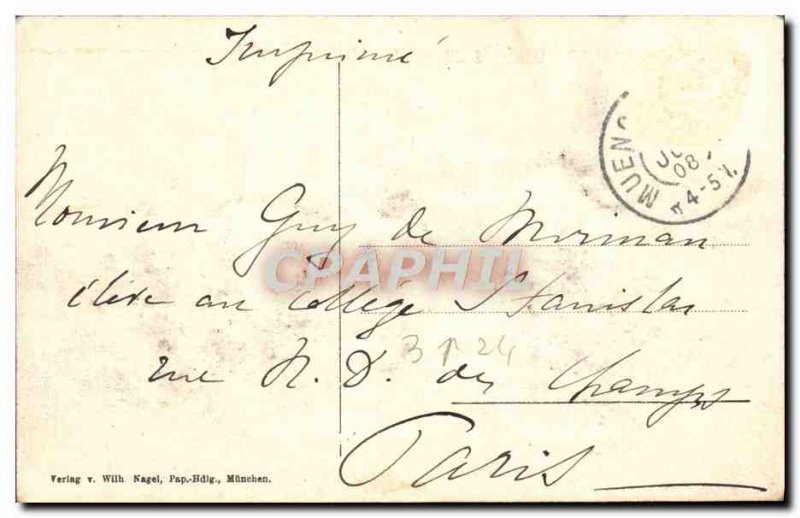 Imprimé
MUEN
JU
08
4-5 V.
Monsieur Guy de Morinan
CPAPHIL
élève au collège Stanislas
3 24
rue N. D. des Champs
Paris
Verlag v. Wilh. Nagel, Pap.-Hdlg., München.